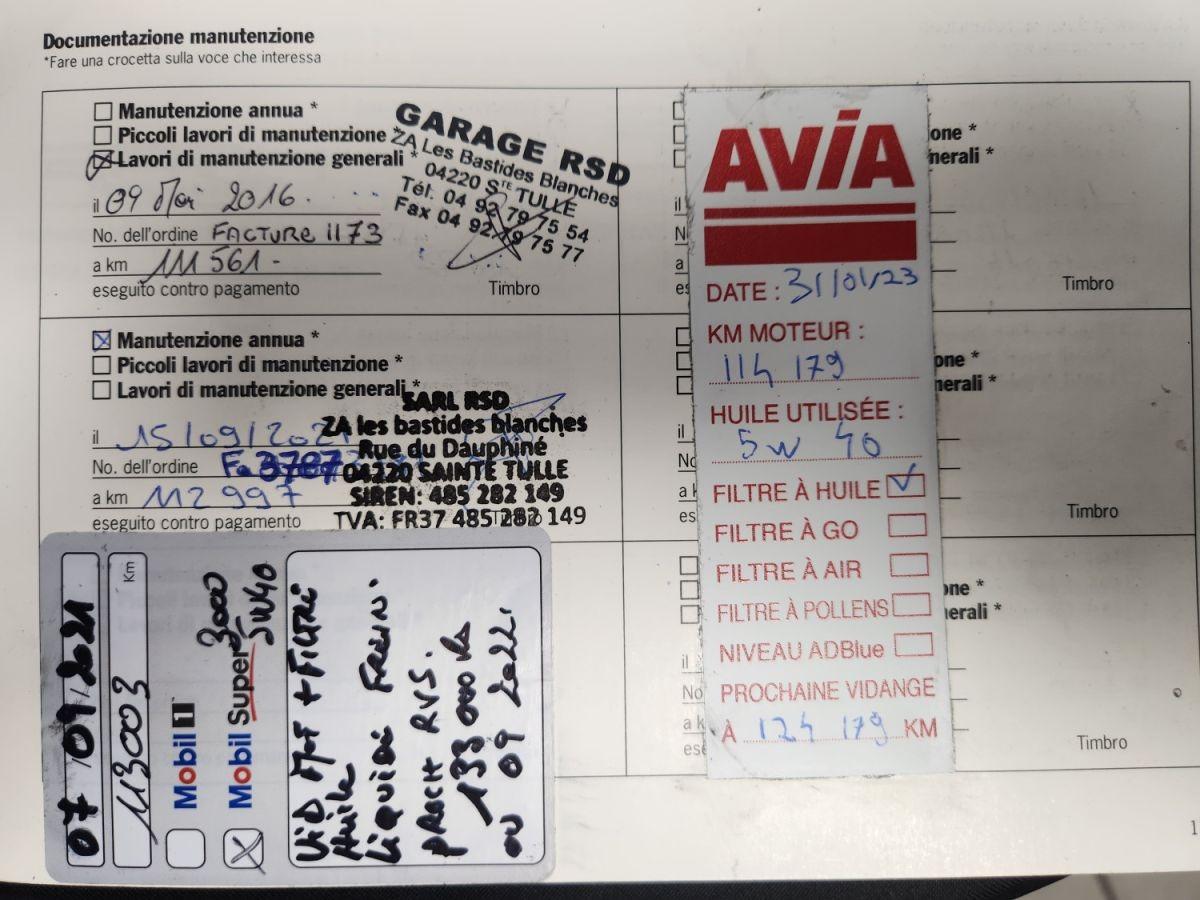 Documentazione manutenzione
*Fare una crocetta sulla voce che interessa
Manutenzione annua *
Piccoli lavori di manutenzione *
Lavori di manutenzione generali *
il 09 Mai 2016
No. dell'ordine FACTURE 1173
a km 111 561 -
eseguito contro pagamento
Timbro
GARAGE RSD
ZA Les Bastides Blanches
04220 STE TULLE
Tél: 04 92 79 75 54
Fax 04 92 79 75 77
Manutenzione annua *
Piccoli lavori di manutenzione *
Lavori di manutenzione generali *
il 15/09/2021
No. dell'ordine Fa 3787
a km 112 997
eseguito contro pagamento
SARL RSD
ZA les bastides blanches
Rue du Dauphiné
04220 SAINTE TULLE
SIREN: 485 282 149
TVA: FR37 485 282 149
07 09/2021
113003 Km
Mobil 1
Mobil Super 3000 5W40
ViD + FiLTRE
Huile
Liquide FREIN.
PROCH RVS.
133 000 Ks
ou 09 2022
AVIA
DATE : 31/01/23
KM MOTEUR :
114 179
HUILE UTILISÉE :
5w 40
FILTRE À HUILE
FILTRE À GO
FILTRE À AIR
FILTRE À POLLENS
NIVEAU ADBlue
PROCHAINE VIDANGE
À 124 179 KM
one *
nerali *
il
a
Timbro
one *
nerali *
il
Timbro
one *
nerali *
il
No
Timbro
1